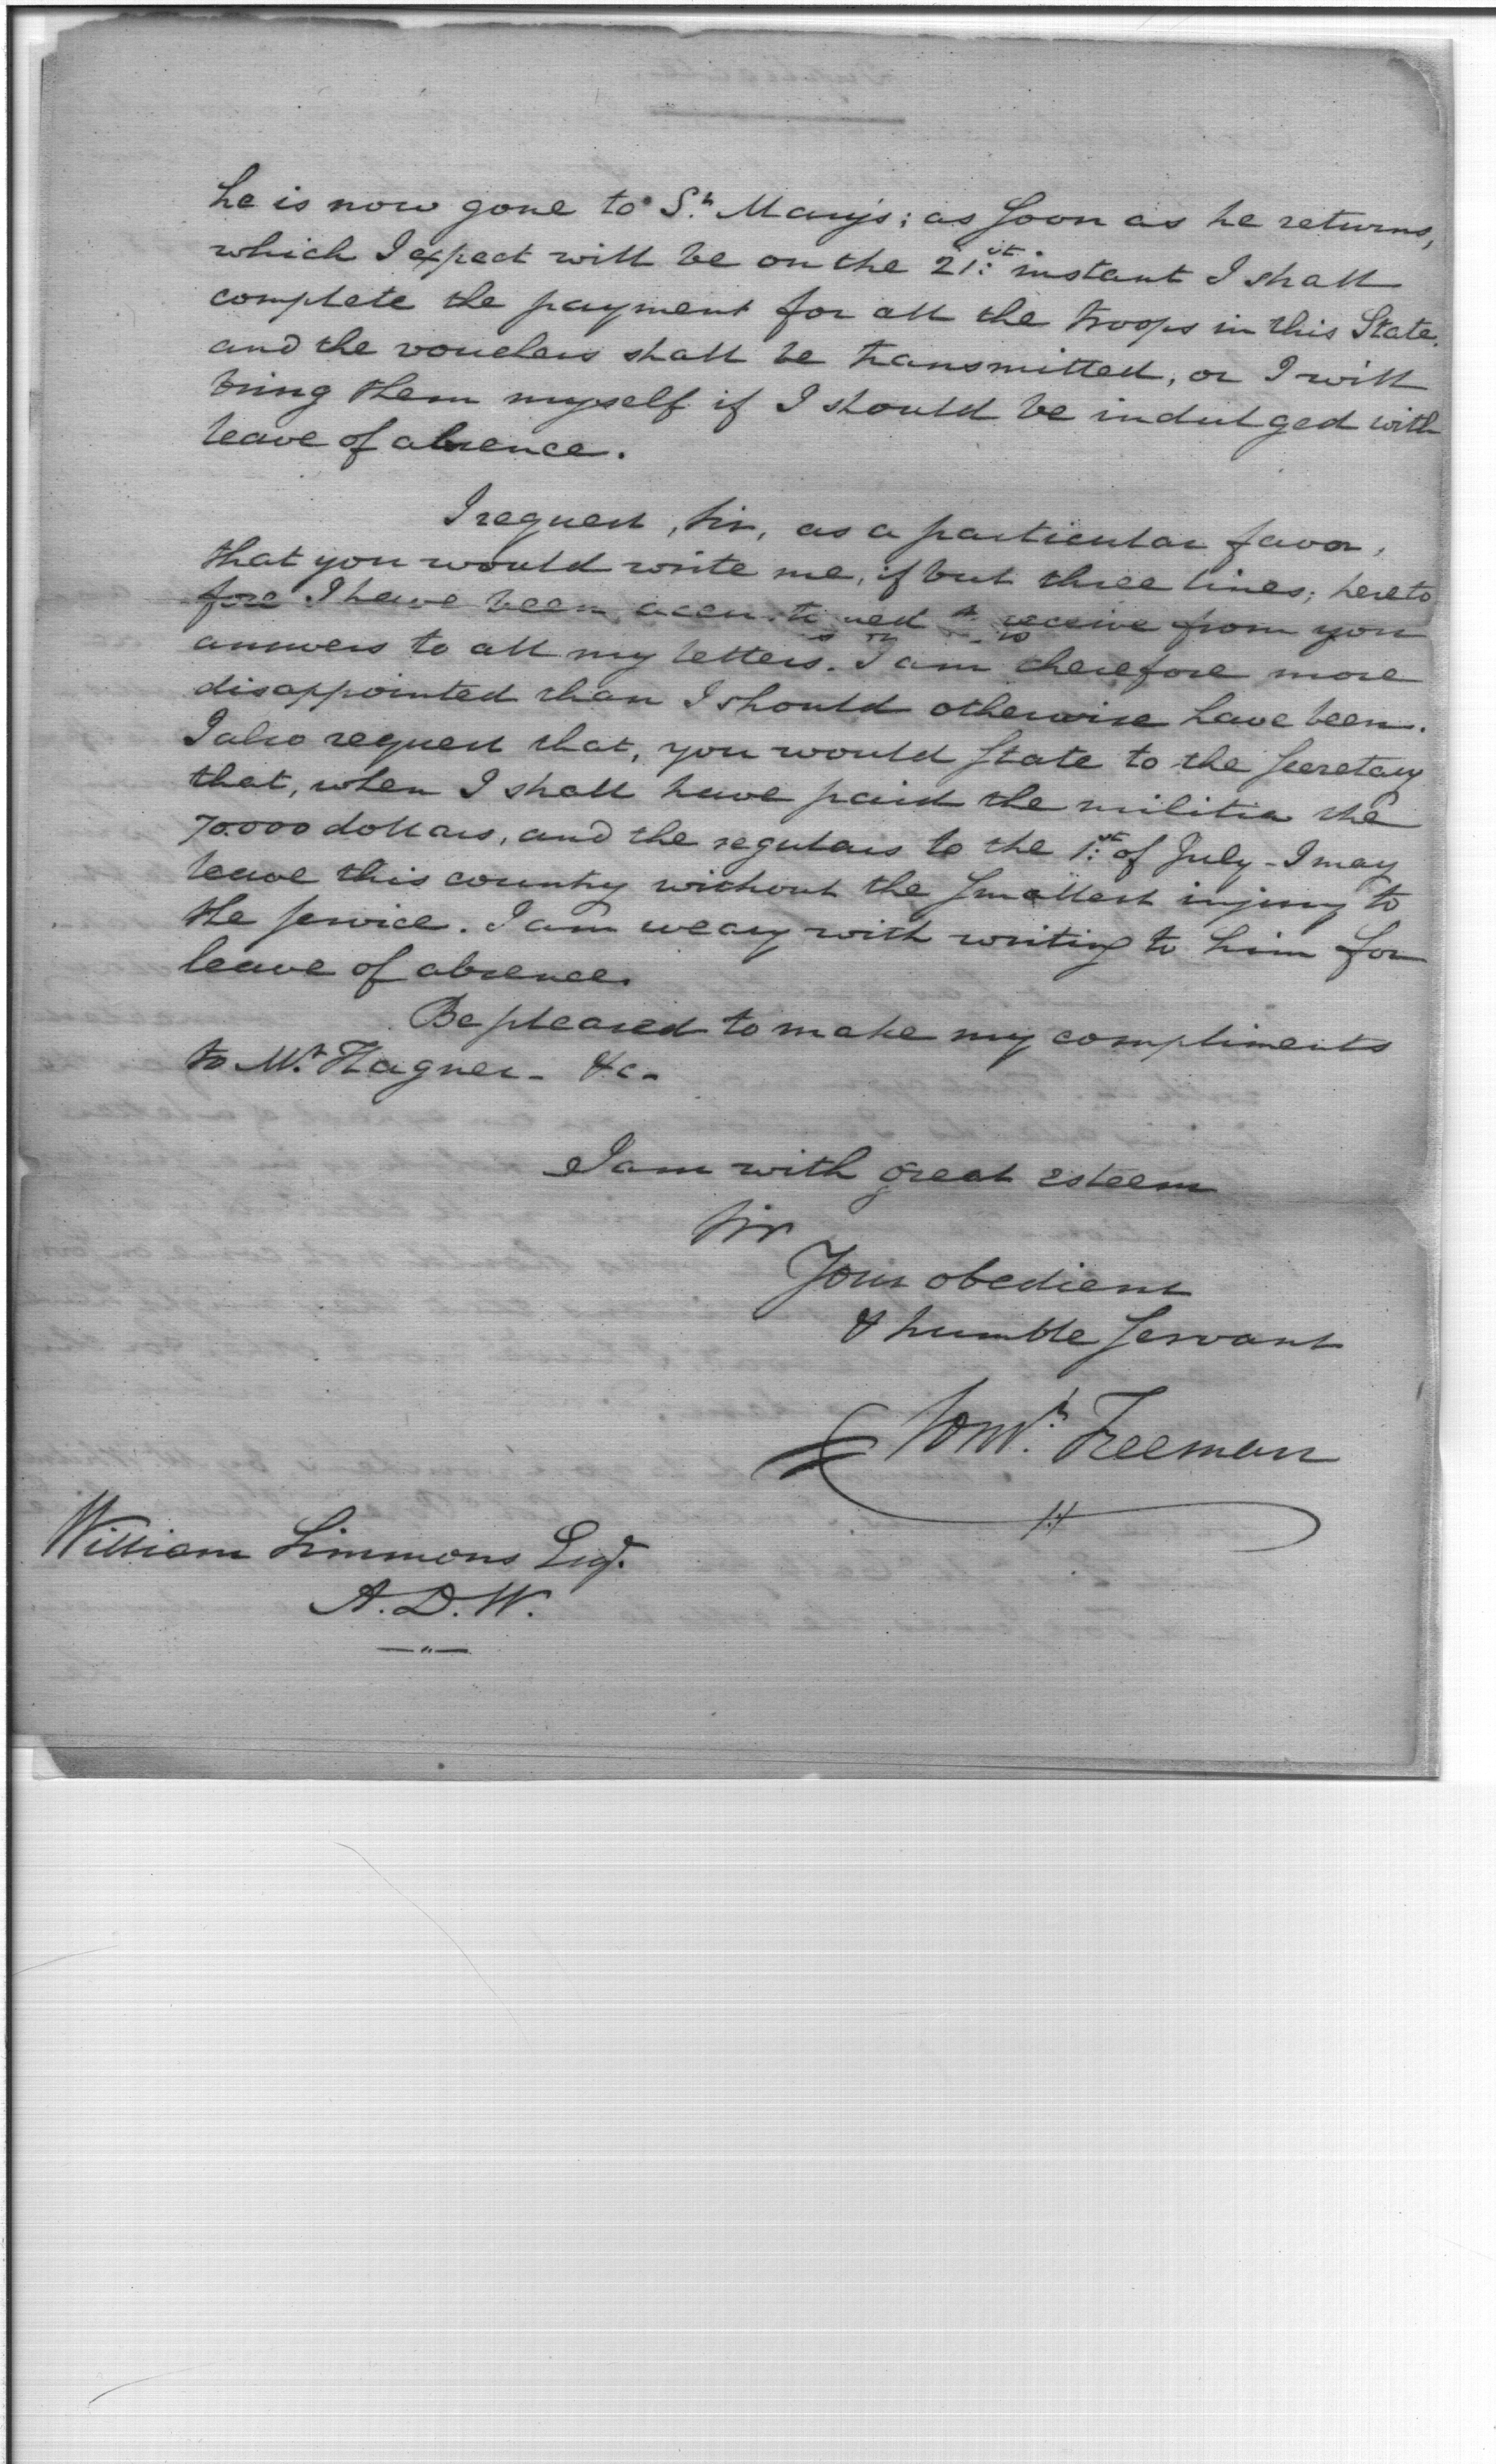 he is now gone to St. Mary's; as soon as he returns,
which I expect will be on the 21st. instant I shall
complete the payment for all the troops in this State.
and the vouchers shall be transmitted, or I will
bring them myself if I should be indulged with
leave of absence.
I request, Sir, as a particular favor,
that you would write me, if but three lines; hereto
fore I have been accustomed to receive from you
answers to all my letters. I am therefore more
disappointed than I should otherwise have been.
I also request that, you would state to the Secretary
that, when I shall have paid the militia the
70.000 dollars, and the regulars to the 1st. of July - I may
leave this country without the smallest injury to
the service. I am weary with writing to him for
leave of absence.
Be pleased to make my compliments
to Mr. Hagner - &c -
I am with great esteem
Sir
Your obedient
& humble Servant
Constt. Freeman
William Simmons Esqr.
A.D.W.